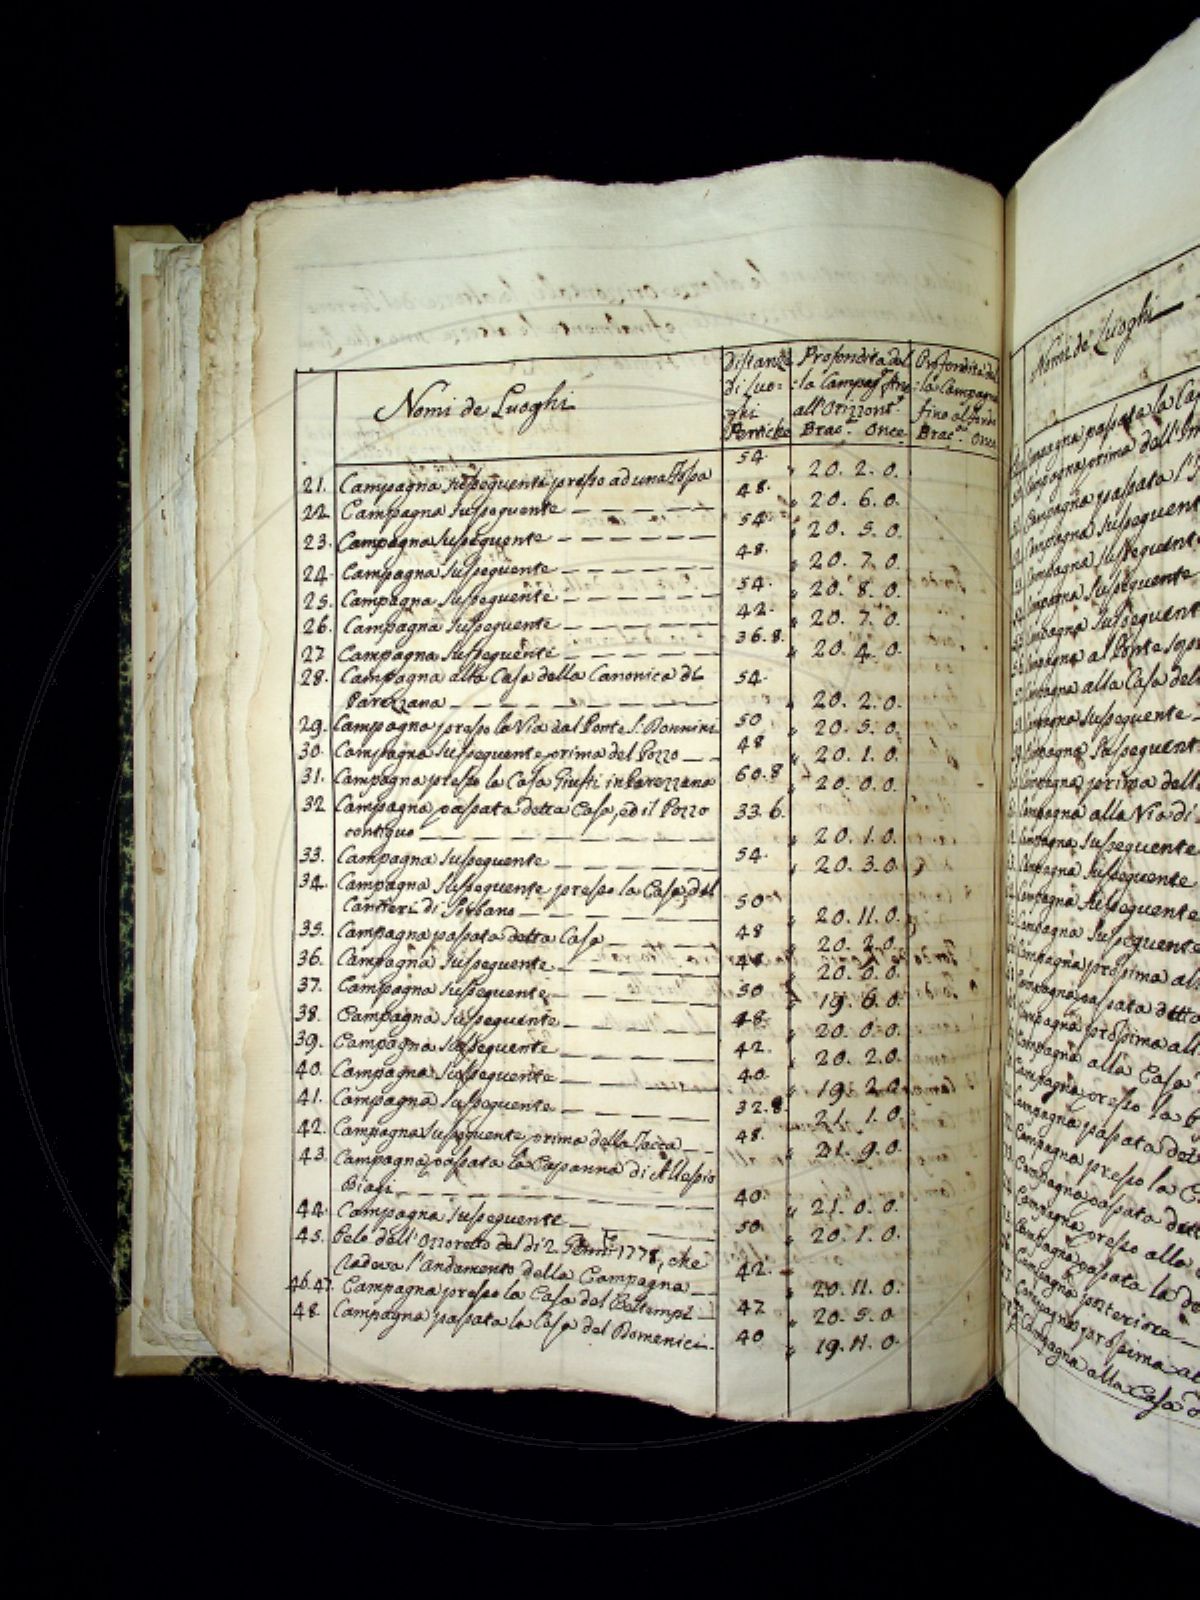 Nomi de Luoghi
Distanze di Luoghi Pertiche
Profondità del-la Campag.ª fino all'Orizzont.e Brac.ª Once
Profondità del-la Campagna fino al fondo Brac.ª Once
21. Campagna susseguente presso ad una Fossa 54. 20. 2. 0.
22. Campagna susseguente 48. 20. 6. 0.
23. Campagna susseguente 54. 20. 5. 0.
24. Campagna susseguente 48. 20. 7. 0.
25. Campagna susseguente 54. 20. 8. 0.
26. Campagna susseguente 42. 20. 7. 0.
27. Campagna susseguente 36.8. 20. 4. 0.
28. Campagna alla Casa della Canonica di 54.
Parezzana 20. 2. 0.
29. Campagna presso la Via dal Ponte S. Donnini 50. 20. 5. 0.
30. Campagna susseguente prima del Pozzo 48 20. 1. 0.
31. Campagna presso la Casa Giusti in Parezzana 60.8 20. 0. 0.
32 Campagna passata detta Casa, ed il Pozzo 33.6.
contiguo 20. 1. 0.
33. Campagna susseguente 54. 20. 3. 0.
34. Campagna susseguente presso la Casa, del
di Sorbano 50. 20. 11. 0.
35. Campagna passata detta Casa 48 20. 2. 0.
36. Campagna susseguente 48. 20. 0. 0.
37. Campagna susseguente 50 19. 6. 0.
38. Campagna susseguente 48. 20. 0. 0.
39. Campagna susseguente 42. 20. 2. 0.
40. Campagna susseguente 40. 19. 2. 0.
41. Campagna susseguente 32.8. 21. 1. 0.
42. Campagna susseguente prima della 48. 21. 9. 0.
43. Campagna passata la Capanna di Allessio
Biagi 40. 21. 0. 0.
44. Campagna susseguente 50. 20. 1. 0.
45. Pelo dell'Ozzoretto del dì 2. Genn: 1778, che
radeva l'andamento della Campagna 42. 20. 11. 0.
46.47. Campagna presso la Casa del 42 20. 5. 0
48. Campagna passata la Casa del Domenici. 40 19. 11. 0.
Nomi de Luoghi
Campagna passata la
Campagna prima dell'
Campagna passata
Campagna susseguent
Campagna susseguente
Campagna susseguente
Campagna susseguent
Campagna al Ponte
Campagna alla Casa del
Campagna susseguente
Campagna susseguent
Campagna prima dell
Campagna alla Via di
Campagna susseguente
Campagna susseguente
Campagna susseguente
Campagna susseguente
Campagna prossima al
Campagna passata detta
Campagna prossima all
Campagna alla Casa
Campagna presso la
Campagna passata det
Campagna presso la
Campagna passata dett
Campagna presso alla
Campagna passata la de
Campagna posteriore
Campagna prossima al
Campagna alla Casa